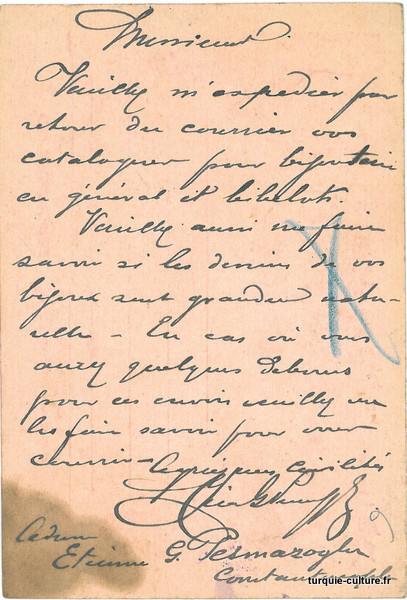 Monsieur.
Veuillez m'expedier par
retour du courrier vos
catalogues pour bijouterie
en général et bibelots.
Veuillez aussi me faire
savoir si les dessins de vos
bijoux sont grandeur natu-
relle - En cas où vous
aurez quelques debours
pour ces envois veuillez me
les faire savoir pour vous
couvrir - Agréez mes civilités
Adresse
Etienne G. Pesmazoglu
Constantinople
turquie-culture.fr